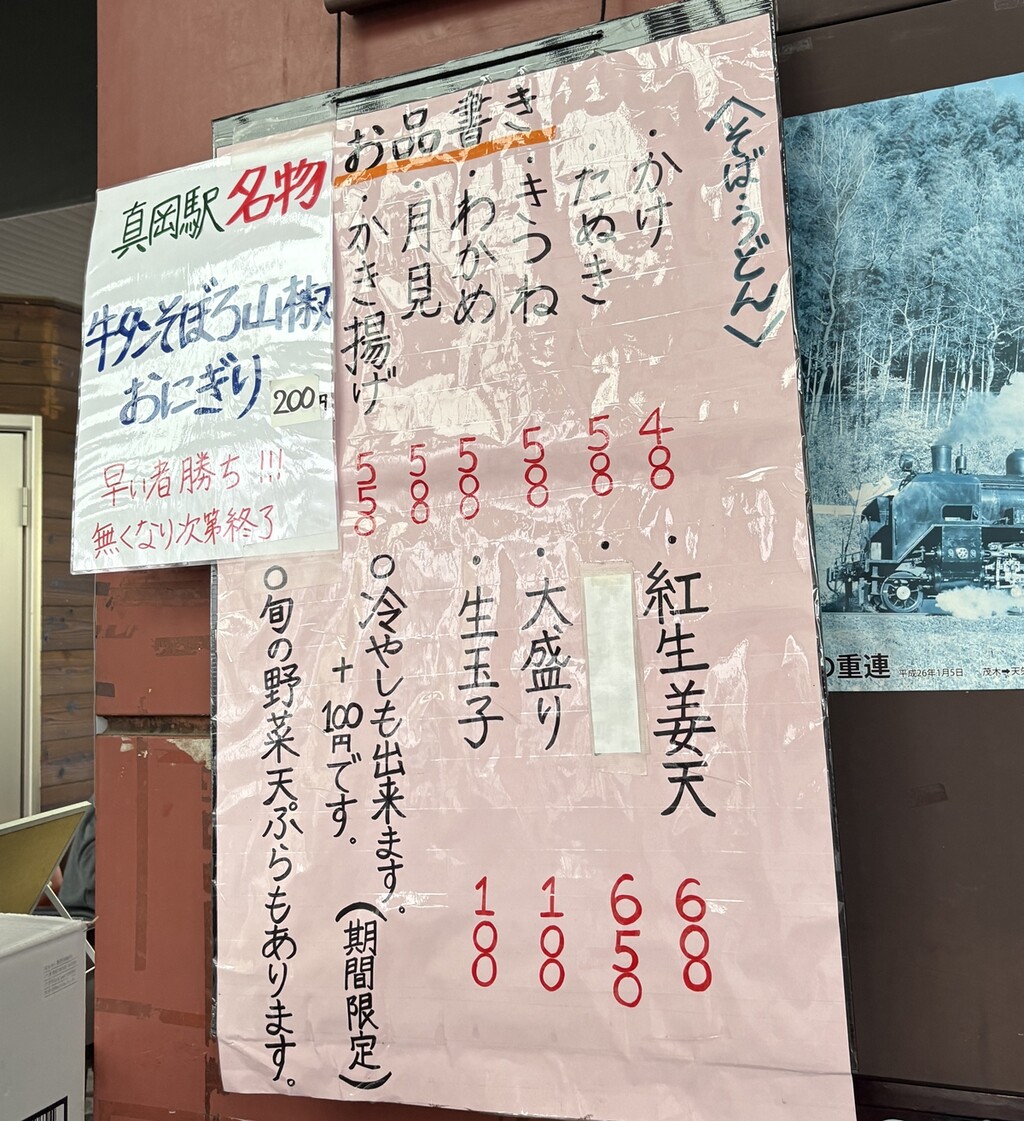 お品書き
〈そば・うどん〉
・かけ 400
・たぬき 500
・きつね 500
・わかめ 500
・月見 500
・かき揚げ 550
・紅生姜天 600
・ 650
・大盛り 100
・生玉子 100
○冷やしも出来ます。
+100円です。(期間限定)
○旬の野菜天ぷらもあります。
真岡駅名物
牛タンそぼろ山椒
おにぎり 200円
早い者勝ち!!!
無くなり次第終了
の重連 平成26年1月5日 茂木➡天